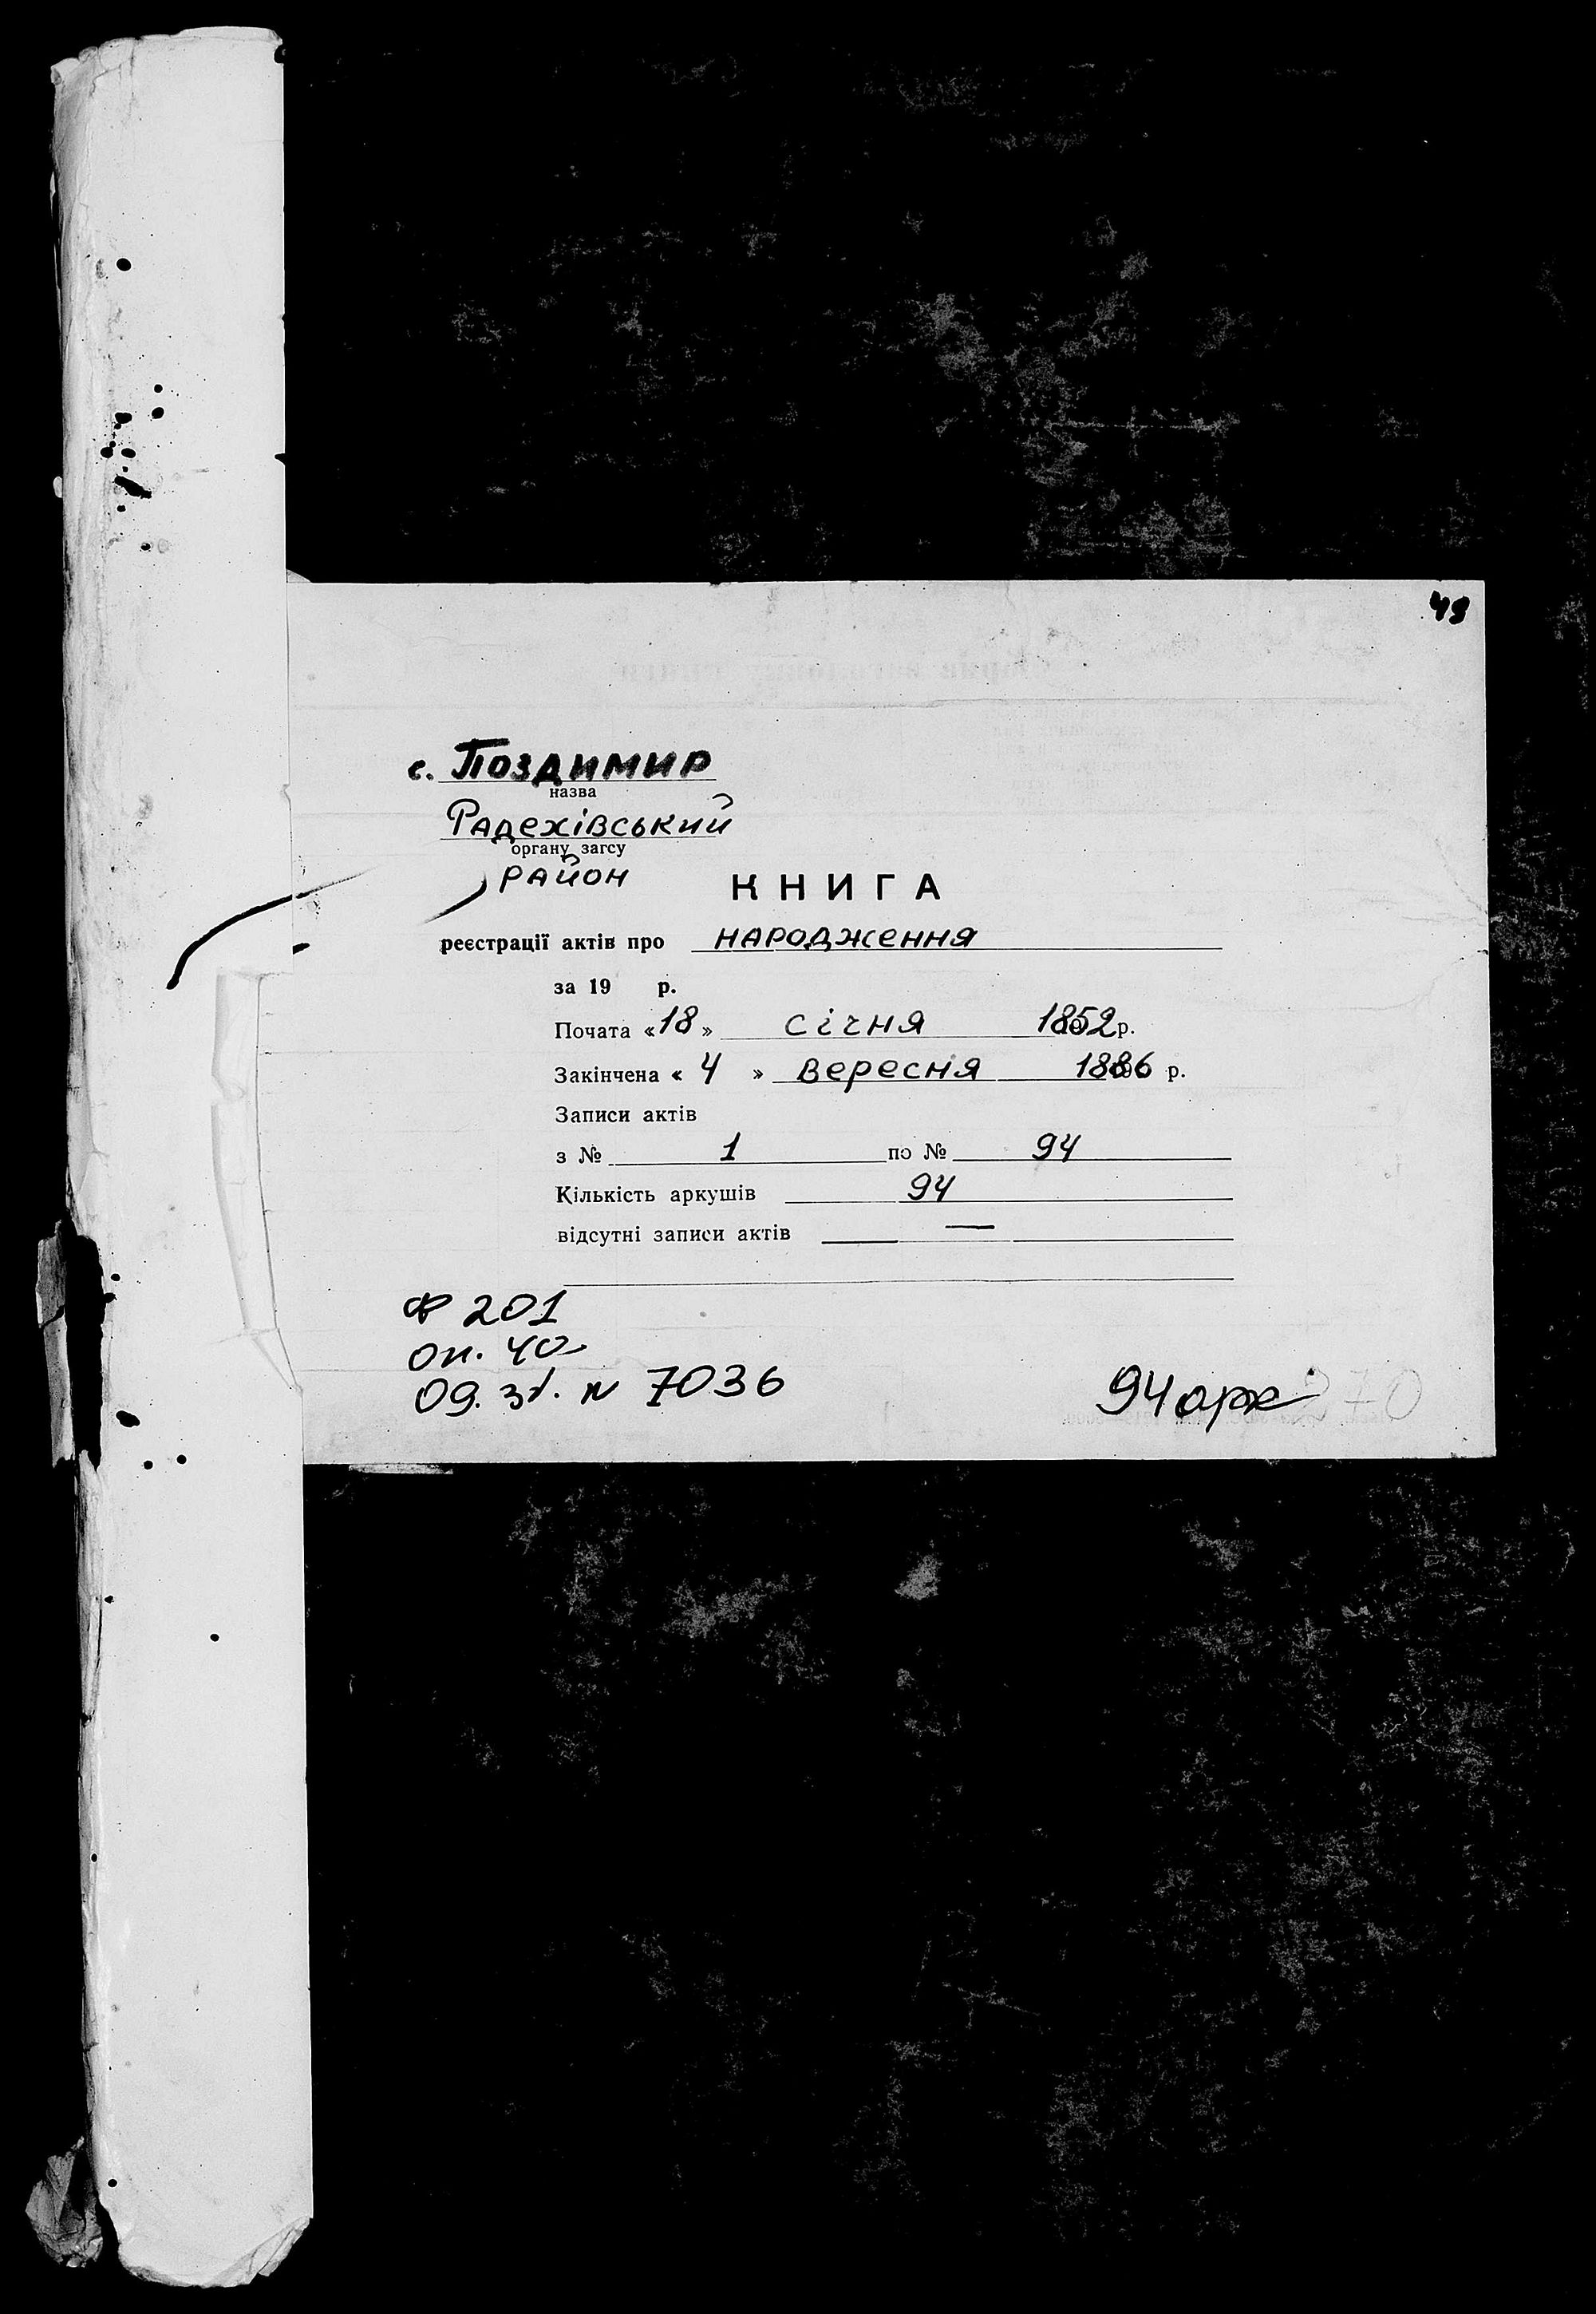 49
с. Поздимир
назва
Радехівський
органу загсу
район
КНИГА
реєстрації актів про народження
за 19 р.
Почата «18» січня 1852 р.
Закінчена «4» вересня 1886 р.
Записи актів
з № 1 по № 94
Кількість аркушів 94
відсутні записи актів —
Ф 201
оп. 4а
од. зб. N 7036
94 арк
270